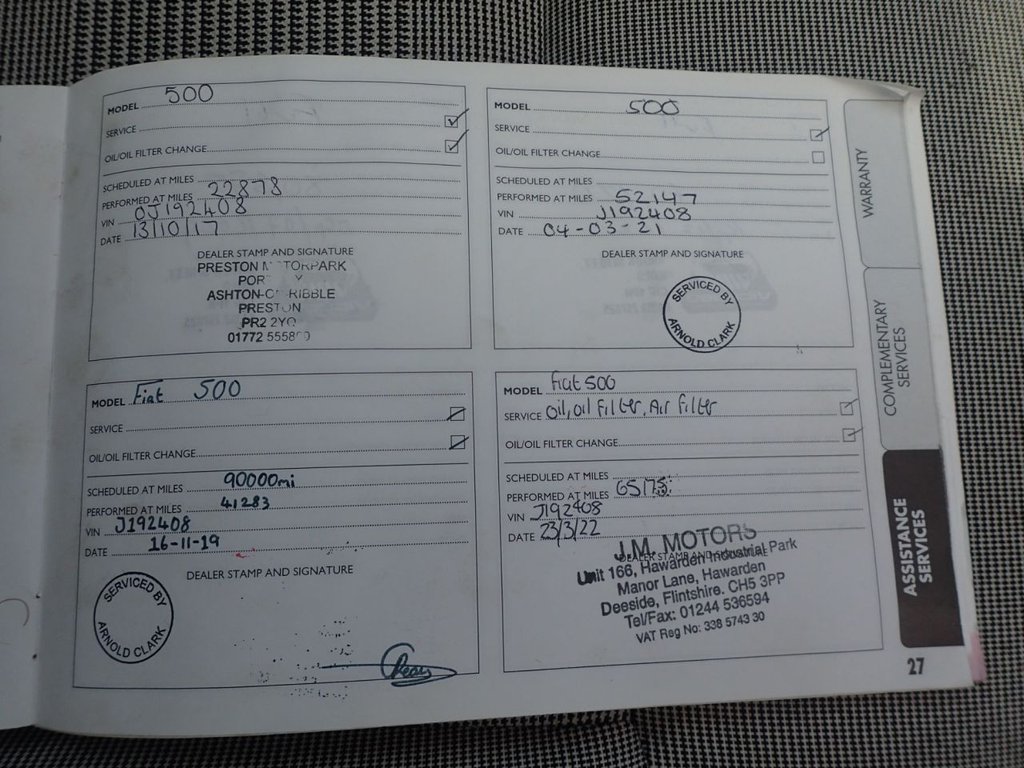 MODEL 500
SERVICE
OIL/OIL FILTER CHANGE
SCHEDULED AT MILES
PERFORMED AT MILES 22878
VIN 0J192408
DATE 13/10/17
DEALER STAMP AND SIGNATURE
PRESTON M TORPARK
POR Y
ASHTON-O RIBBLE
PRESTON
PR2 2YO
01772 5558
MODEL 500
SERVICE
OIL/OIL FILTER CHANGE
SCHEDULED AT MILES
PERFORMED AT MILES 52147
VIN J192408
DATE 04-03-21
DEALER STAMP AND SIGNATURE
SERVICED BY
ARNOLD CLARK
MODEL Fiat 500
SERVICE
OIL/OIL FILTER CHANGE
SCHEDULED AT MILES 90000mi
PERFORMED AT MILES 41283
VIN J192408
DATE 16-11-19
DEALER STAMP AND SIGNATURE
SERVICED BY
ARNOLD CLARK
MODEL fiat 500
SERVICE Oil, oil filter, Air filter
OIL/OIL FILTER CHANGE
SCHEDULED AT MILES
PERFORMED AT MILES 65175
VIN J192408
DATE 23/3/22
DEALER STAMP AND SIGNATURE
J.M. MOTORS
Unit 166, Hawarden Industrial Park
Manor Lane, Hawarden
Deeside, Flintshire. CH5 3PP
Tel/Fax: 01244 536594
VAT Reg No: 338 5743 30
WARRANTY
COMPLEMENTARY
SERVICES
ASSISTANCE
SERVICES
27